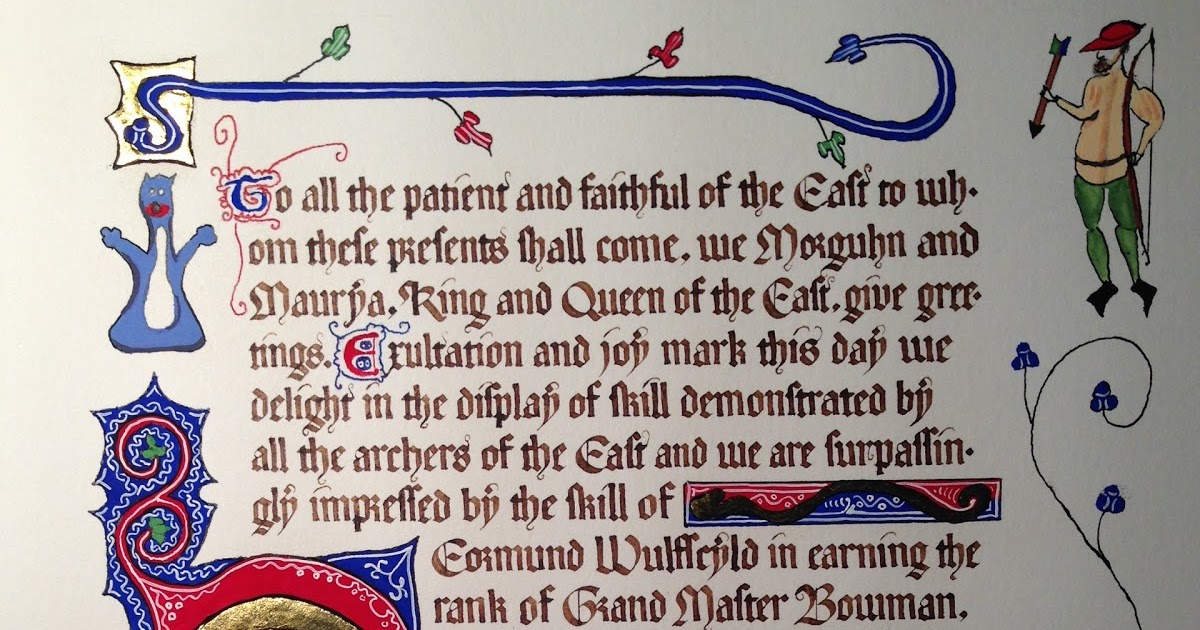 To all the patient and faithful of the East to wh·
om theſe preſents ſhall come, we Morguhn and
Maurÿa, King and Queen of the East, give gree·
tings. Exultation and joÿ mark this daÿ we
delight in the diſplaÿ of ſkill demonſtrated bÿ
all the archers of the Eaſt and we are ſurpaſſin·
glÿ impreſſed bÿ the ſkill of
Eormund Wulfſcÿld in earning the
rank of Grand Maſter Bowman,